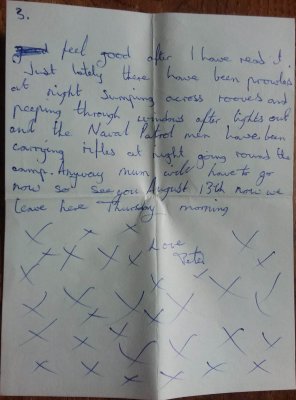 3.
feel good after I have read it.
Just lately there have been prowlers
at night jumping across rooves and
peeping through windows after lights out
and the Naval Patrol men have been
carrying rifles at night going round the
camp. Anyway mum will have to go
now so see you August 13th now we
leave here Thursday morning
Love
Peter
X X X
X X X X X
X X X X X
X X X X X X
X X X X X X
X X X X X
X X X X X X